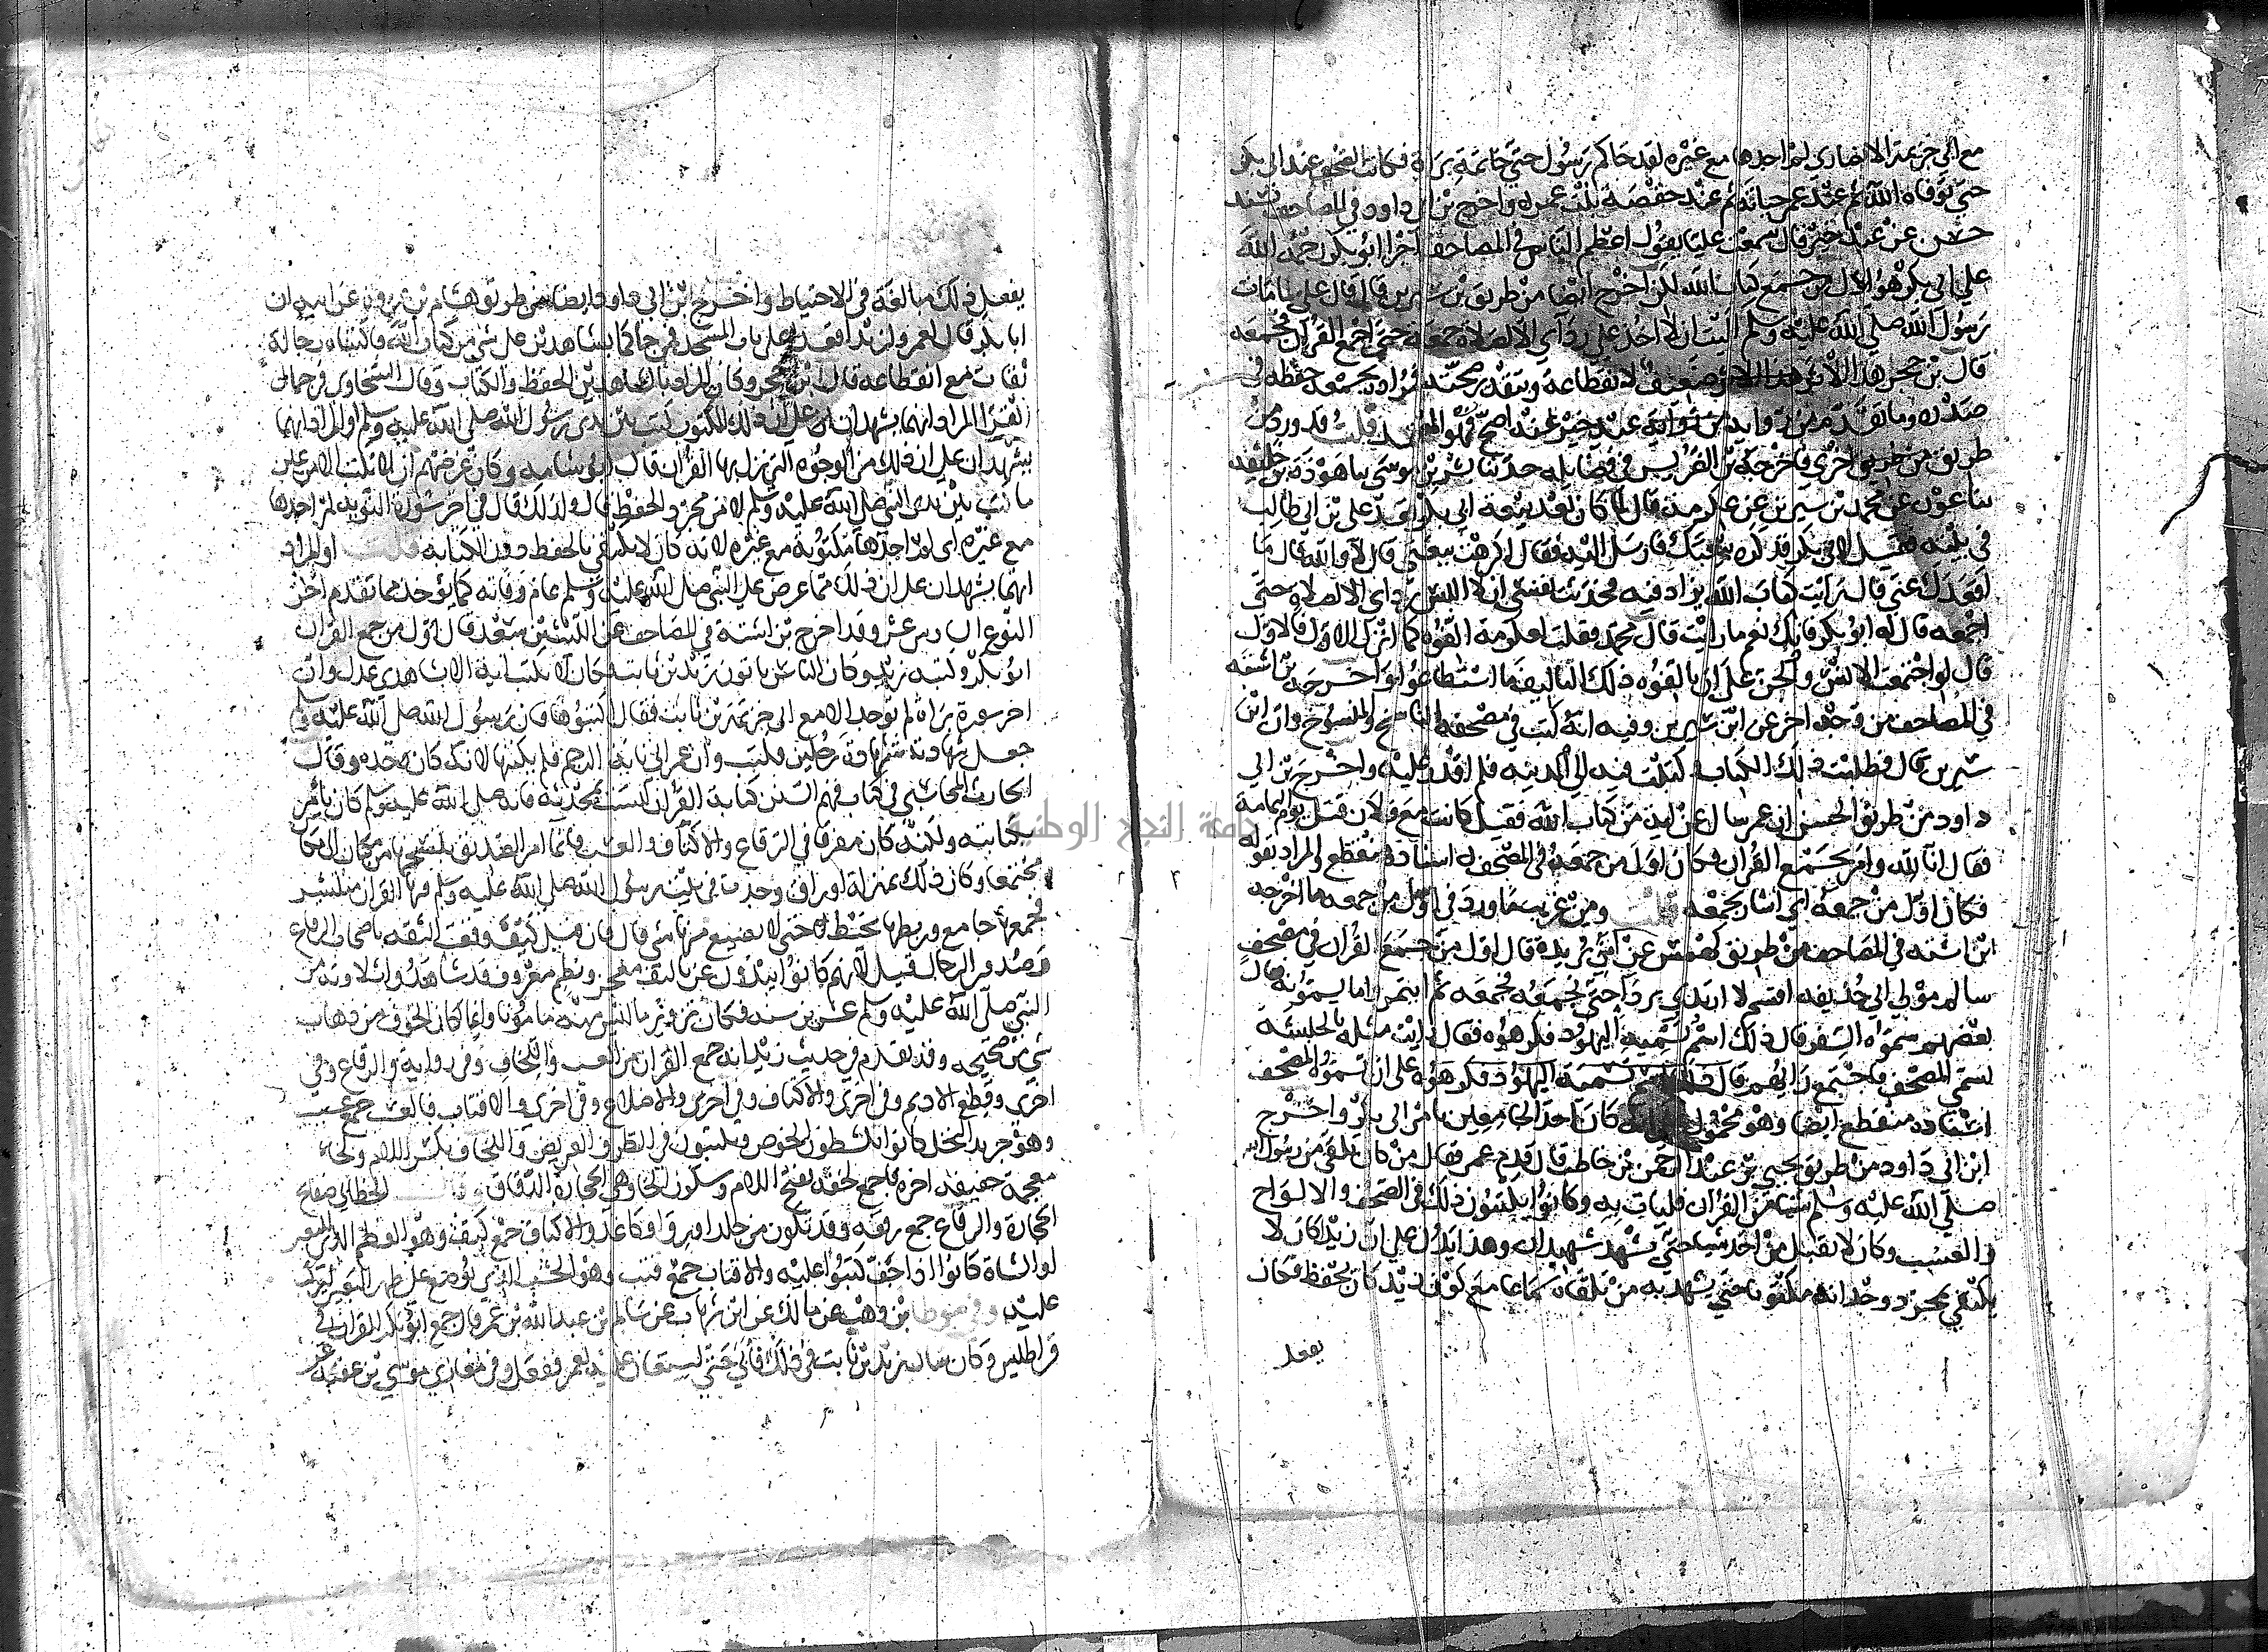 مع ابي خزيمة الانصاري لم اجدها مع غيره لقد جاكم رسول حتي خاتمة براة فكانت الصحف عند ابي بكر
حتي توفاه الله ثم عند عمر حياته ثم عند حفصة بنت عمر واخرج بن ابي داود في المصاحف بسند
حسن عن عبد خير قال سمعت عليا يقول اعظم الناس في المصاحف اجرا ابو بكر رحمة الله
علي ابي بكر هو اول من جمع كتاب الله لكن اخرج ايضا من طريق بن سيرين قال قال علي لما مات
رسول الله صلي الله عليه وسلم اليت ان لا اخذ علي رداي الا لصلاة جمعة حتي اجمع القران فجمعه
قال بن حجر هذا الاثر ضعيف لانقطاعه وبتقدير صحته فمراده بجمعه حفظه في
صدره وما تقدم من رواية عبد خير عنه اصح فهو المعتمد قلت قد ورد من
طريق اخري فاخرجه بن الضريس في فضايله حدثنا بشر بن موسي نا هوذة بن خليفة
نا عون عن محمد بن سيرين عن عكرمة قال لما كان بعد بيعة ابي بكر قعد علي بن ابي طالب
في بيته فقيل لابي بكر قد كره بيعتك فارسل اليه فقال اكرهت بيعتي قال لا والله قال ما
اقعدك عني قال رايت كتاب الله يزاد فيه فحدثت نفسي ان لا البس رداي الا لصلاة حتي
اجمعه قال له ابو بكر فانك نعم ما رايت قال محمد فقلت لعكرمة الفوه كما انزل الاول فالاول
قال لو اجتمعت الانس والجن علي ان يالفوه ذلك التاليف ما استطاعوا واخرجه بن اشته
في المصاحف من وجه اخر عن ابن سيرين وفيه انه كتب في مصحفه الناسخ والمنسوخ وان ابن
سيرين قال فطلبت ذلك الكتاب وكتبت فيه الي المدينه فلم اقدر عليه واخرج بن ابي
داود من طريق الحسن ان عمر سال عن اية من كتاب الله فقيل كانت مع فلان قتل يوم اليمامة
فقال انا لله وامر بجمع القران فكان اول من جمعه في المصحف اسناده منقطع والمراد بقوله
فكان اول من جمعه اي اشار بجمعه قلت ومن غريب ما ورد في اول من جمعه ما اخرجه
ابن اشته في المصاحف من طريق كهمس عن ابن بريدة قال اول من جمع القران في مصحف
سالم مولي ابي حذيفه اقسم لا ارتدي بردا حتي يجمعه فجمعه ثم ايتمروا ما يسمونه قال
بعضهم سموه السفر قال ذلك اسم تسميه اليهود فكرهوه فقال رايت مثله بالحبشة
يسمي المصحف فاجتمع رايهم علي ان تسموه المصحف
اسناده منقطع ايضا وهو محمول علي انه كان احد الجامعين بامر ابي بكر واخرج
ابن ابي داود من طريق يحيي بن عبد الرحمن بن حاطب قال قدم عمر فقال من كان تلقي من رسول الله
صلي الله عليه وسلم شيا من القران فليات به وكانوا يكتبون ذلك في الصحف والالواح
والعسب وكان لا يقبل من احد شيا حتي يشهد شهيدان وهذا يدل علي ان زيدا كان لا
يكتفي بمجرد وجدانه مكتوبا حتي يشهد به من تلقاه سماعا مع كون زيد كان يحفظ فكان
يفعل
يفعل ذلك مبالغة في الاحتياط واخرج ابن ابي داود ايضا من طريق هشام بن عروة عن ابيه ان
ابا بكر قال لعمر ولزيد اقعدا علي باب المسجد فمن جاكما بشاهدين علي شي من كتاب الله فاكتباه رجاله
ثقات مع انقطاعه قال ابن حجر وكان المراد بالشاهدين الحفظ والكتاب وقال السخاوي في جمال
القرا المراد انهما يشهدان علي ان ذلك المكتوب كتب بين يدي رسول الله صلي الله عليه وسلم او المراد انهما
يشهدان علي ان ذلك من الوجوه التي نزل بها القران قال ابو شامه وكان غرضهم ان لا يكتب الا من عين
ما كتب بين يدي النبي صلي الله عليه وسلم لا من مجرد الحفظ قال ولذلك قال في اخر سورة التوبه لم اجدها
مع غيره اي لم اجدها مكتوبة مع غيره لانه كان لا يكتفي بالحفظ دون الكتابه قلت او المراد
انهما يشهدان علي ان ذلك مما عرض علي النبي صلي الله عليه وسلم عام وفاته كما يؤخذ مما تقدم اخر
النوع السادس عشر وقد اخرج بن اشته في المصاحف عن الليث بن سعد قال اول من جمع القران
ابو بكر وكتبه زيد وكان الناس ياتون زيد بن ثابت فكان لا يكتب اية الا بشاهدي عدل وان
اخر سورة براة لم توجد الا مع ابي خزيمة بن ثابت فقال اكتبوها فان رسول الله صلي الله عليه وسلم
جعل شهادته بشهادة رجلين فكتب وان عمر اتي باية الرجم فلم يكتبها لانه كان وحده وقال
الحارث المحاسبي في كتاب فهم السنن كتابة القران ليست بمحدثة فانه صلي الله عليه وسلم كان يامر
بكتابته ولكنه كان مفرقا في الرقاع والاكتاف والعسب فانما امر الصديق بنسخها من مكان الي مكان
مجتمعا وكان ذلك بمنزلة اوراق وجدت في بيت رسول الله صلي الله عليه وسلم فيها القران منتشر
فجمعها جامع وربطها بخيط حتي لا يضيع منها شي قال فان قيل كيف وقعت الثقه باصحاب الرقاع
وصدور الرجال قيل لانهم كانوا يبدون عن تاليف معجز ونظم معروف قد شاهدوا تلاوته من
النبي صلي الله عليه وسلم عشرين سنه فكان تزوير ما ليس منه مامونا وانما كان الخوف من ذهاب
شي من صحيحه وقد تقدم في حديث زيد انه جمع القران من العسب واللخاف وفي رواية والرقاع وفي
اخري وقطع الاديم وفي اخري والاكتاف وفي اخري والاضلاع وفي اخري والاقتاب فالعسب جمع عسيب
وهو جريد النخل كانوا يكشطون الخوص ويكتبون في الطرف العريض واللخاف بكسر اللام وبخاء
معجمة خفيفه اخره فا جمع لخفه بفتح اللام وسكون الخا وهي الحجارة الدقاق وقال الخطابي صفايح
الحجارة والرقاع جمع رقعه وقد تكون من جلد او ورق او كاغد والاكتاف جمع كتف وهو العظم الذي للبعير
او الشاة كانوا اذا جف كتبوا عليه والاقتاب جمع قتب وهو الخشب الذي يوضع علي ظهر البعير ليركب
عليه وفي موطا بن وهب عن مالك عن ابن شهاب عن سالم بن عبد الله بن عمر قال جمع ابو بكر القران في
قراطيس وكان سال زيد بن ثابت في ذلك فابي حتي استعان عليه بعمر ففعل وفي مغازي موسي بن عقبه عن